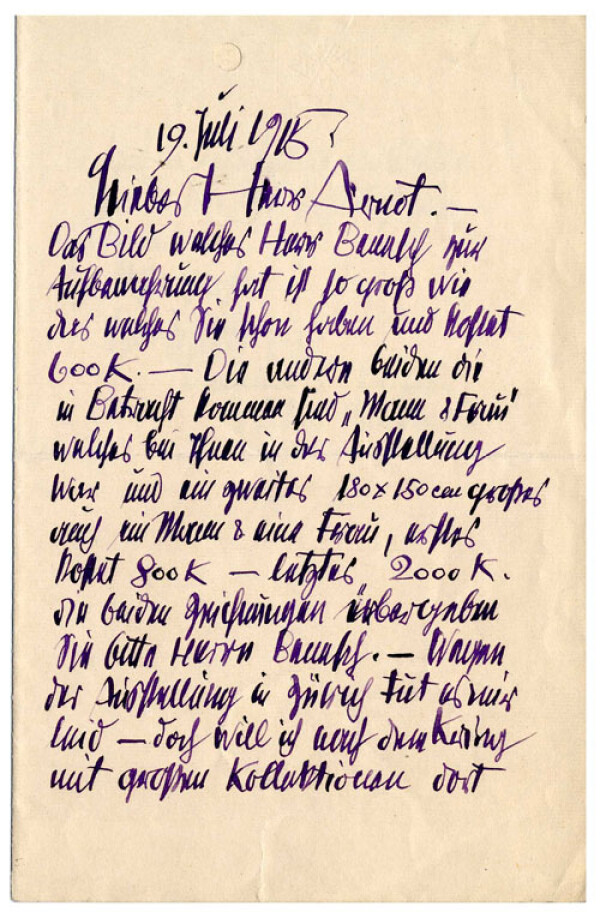 19. Juli 1915
Lieber Herr Arnot. —
Das Bild welches Herr Benesch zur
Aufbewahrung hat ist so groß wie
das welches Sie schon haben und kostet
600 K. — Die andern beiden die
in Betracht kommen sind „Mann & Frau"
welches bei Ihnen in der Ausstellung
war und ein zweites 180 x 150 cm großes
auch ein Mann & eine Frau, erstes
kostet 800 K — letztes 2000 K.
die beiden Zeichnungen übergeben
Sie bitte Herrn Benesch. — Wegen
der Ausstellung in Zürich tut es mir
leid — doch will ich nach dem Krieg
mit großen Kollektionen dort